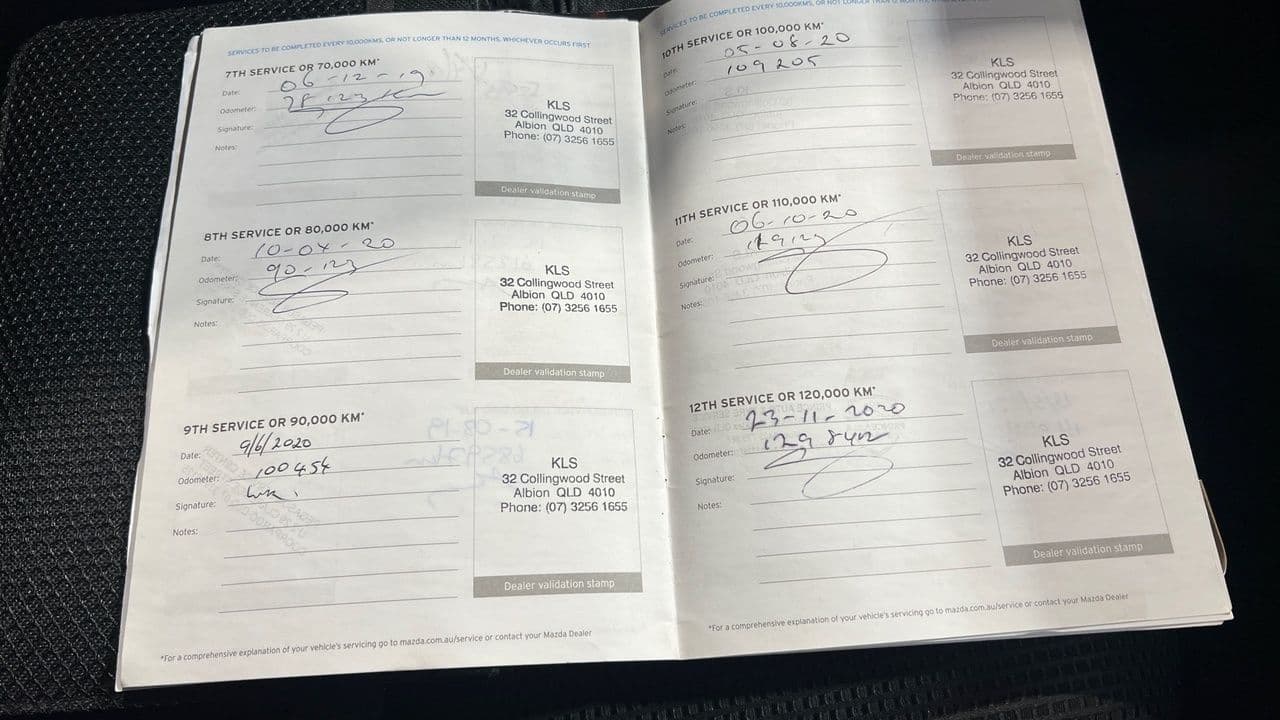 SERVICES TO BE COMPLETED EVERY 10,000KMS, OR NOT LONGER THAN 12 MONTHS, WHICHEVER OCCURS FIRST
7TH SERVICE OR 70,000 KM*
Date: 06-12-19
Odometer:
Signature:
Notes:
KLS
32 Collingwood Street
Albion QLD 4010
Phone: (07) 3256 1655
Dealer validation stamp
8TH SERVICE OR 80,000 KM*
Date: 10-04-20
Odometer: 90-123
Signature:
Notes:
KLS
32 Collingwood Street
Albion QLD 4010
Phone: (07) 3256 1655
Dealer validation stamp
9TH SERVICE OR 90,000 KM*
Date: 9/6/2020
Odometer: 100454
Signature:
Notes:
KLS
32 Collingwood Street
Albion QLD 4010
Phone: (07) 3256 1655
Dealer validation stamp
*For a comprehensive explanation of your vehicle's servicing go to mazda.com.au/service or contact your Mazda Dealer
SERVICES TO BE COMPLETED EVERY 10,000KMS, OR NOT LONGER THAN 12
10TH SERVICE OR 100,000 KM*
Date: 05-08-20
Odometer: 109205
Signature:
Notes:
KLS
32 Collingwood Street
Albion QLD 4010
Phone: (07) 3256 1655
Dealer validation stamp
11TH SERVICE OR 110,000 KM*
Date: 06-10-20
Odometer:
Signature:
Notes:
KLS
32 Collingwood Street
Albion QLD 4010
Phone: (07) 3256 1655
Dealer validation stamp
12TH SERVICE OR 120,000 KM*
Date: 23-11-2020
Odometer:
Signature:
Notes:
KLS
32 Collingwood Street
Albion QLD 4010
Phone: (07) 3256 1655
Dealer validation stamp
*For a comprehensive explanation of your vehicle's servicing go to mazda.com.au/service or contact your Mazda Dealer